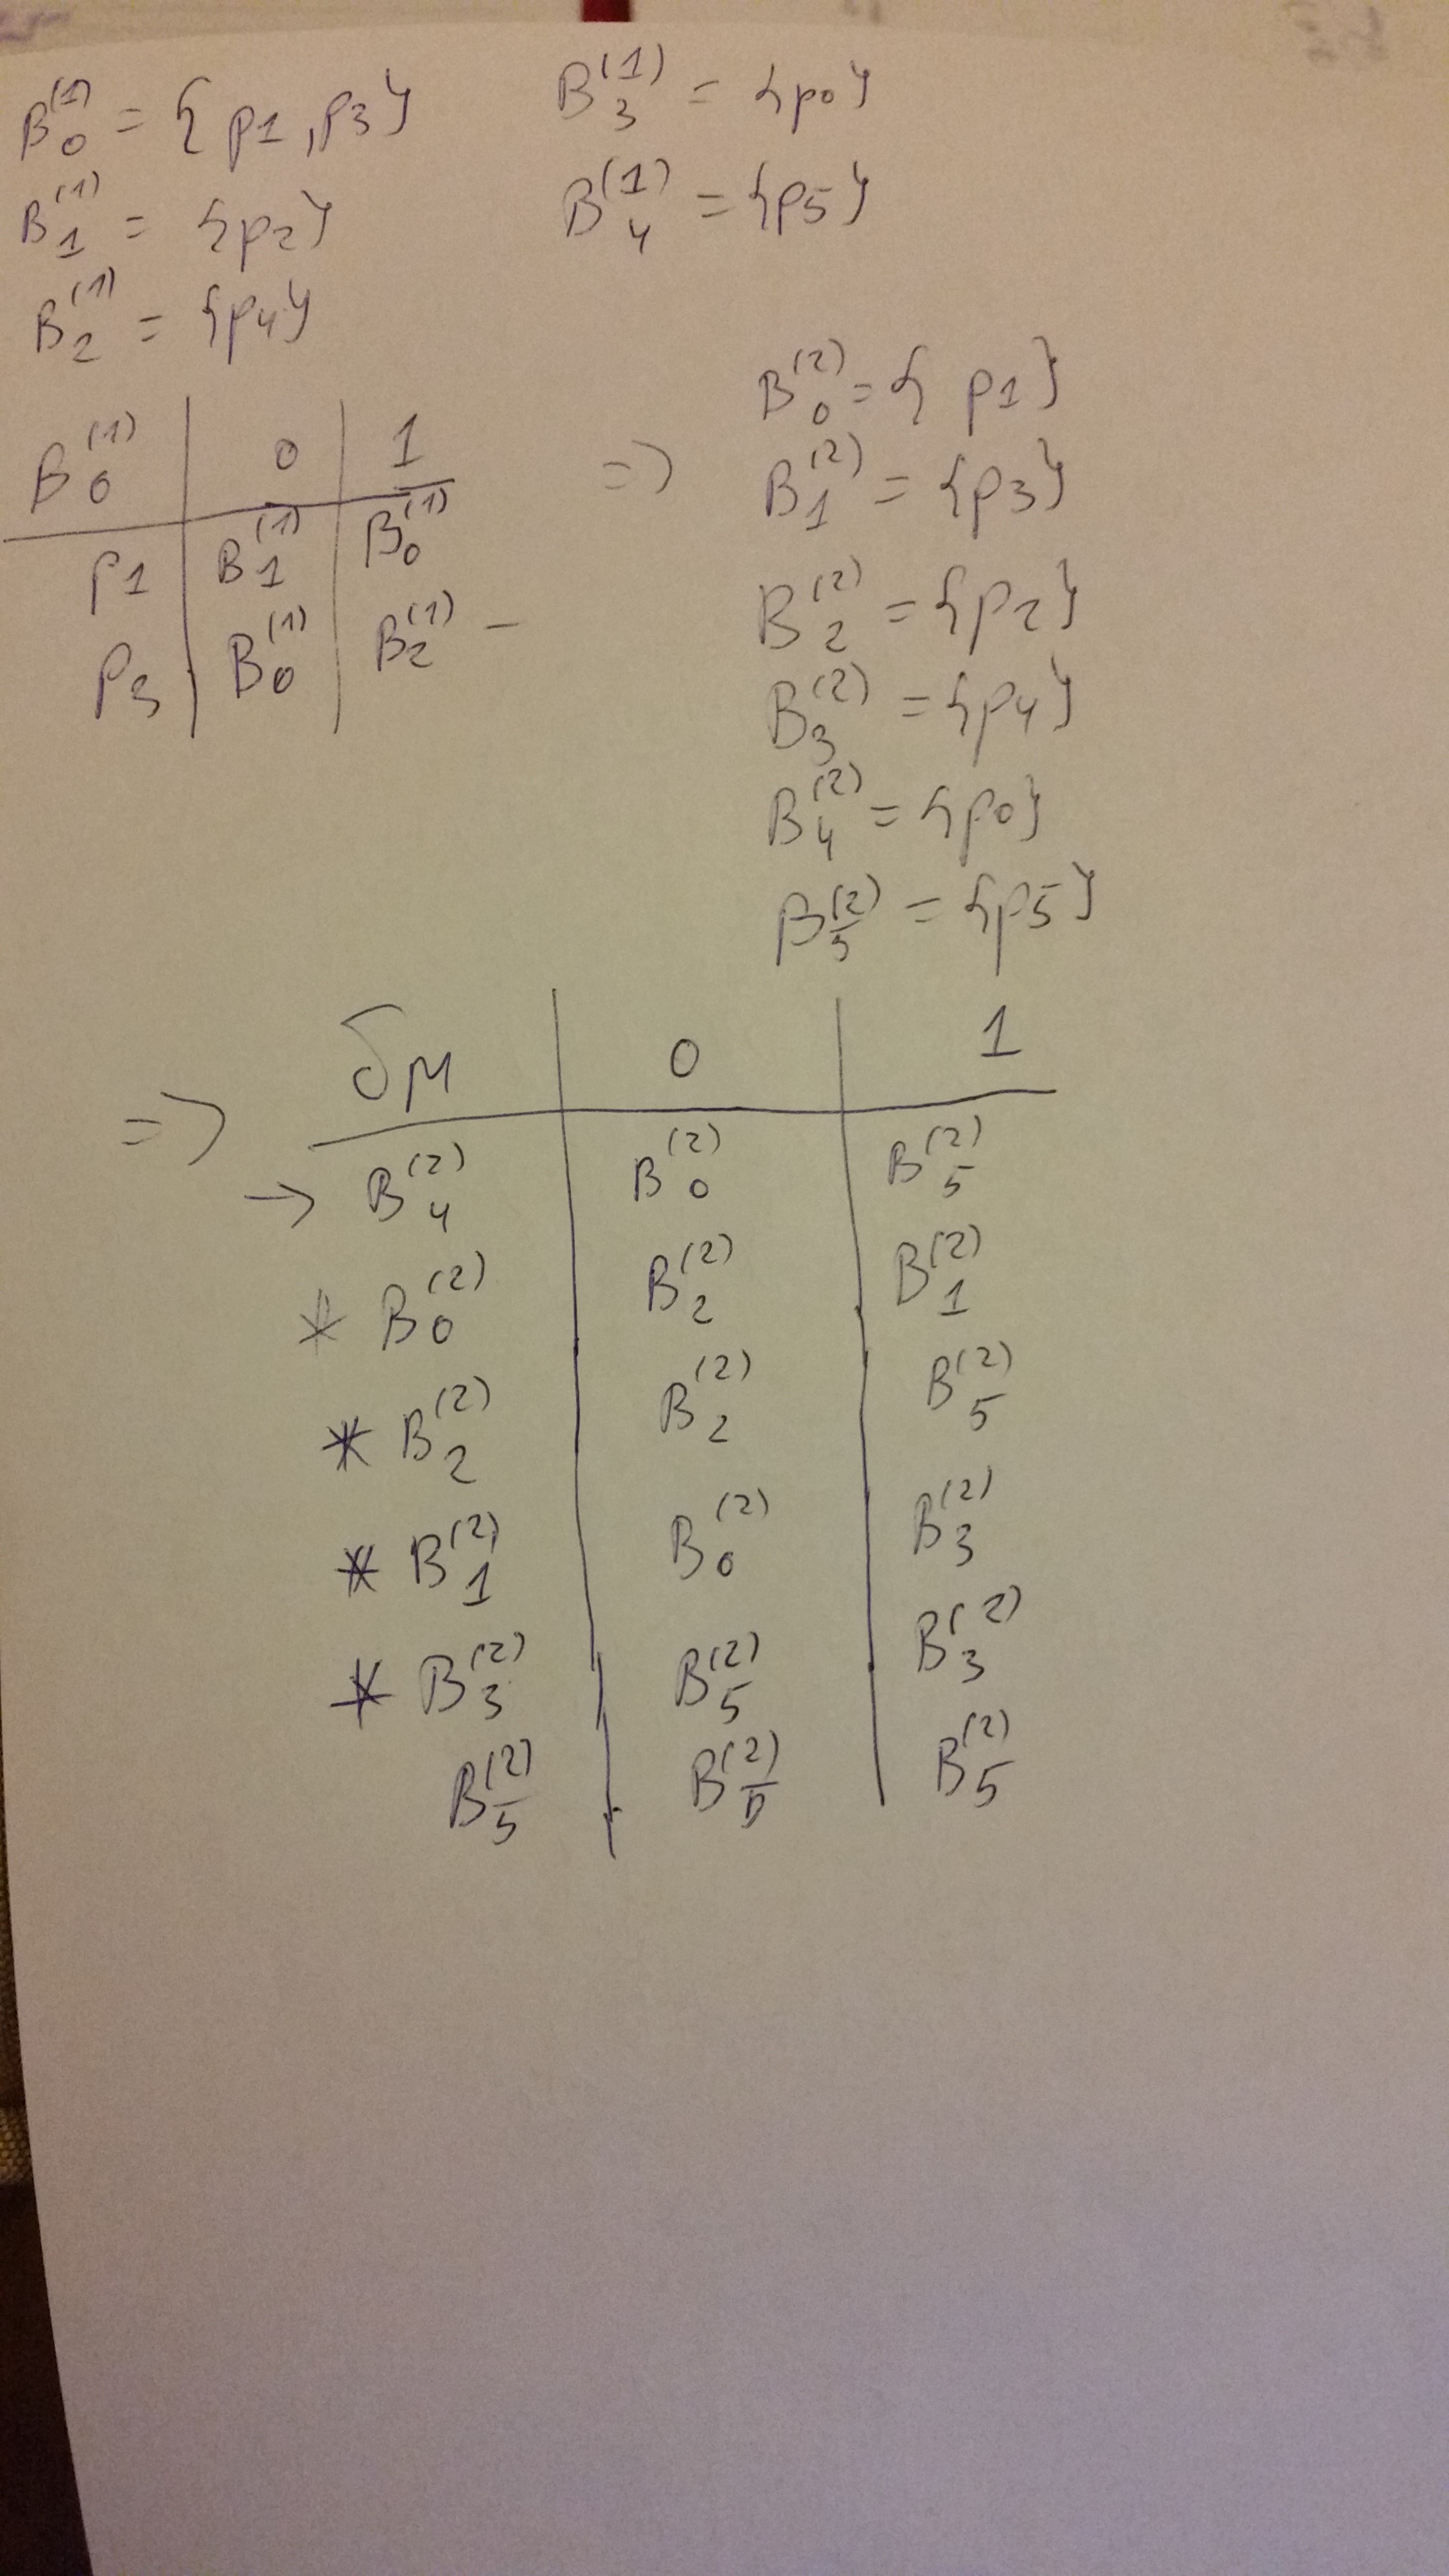 B₀⁽¹⁾ = {p1,p3}
B₁⁽¹⁾ = {p2}
B₂⁽¹⁾ = {p4}
B₃⁽¹⁾ = {p0}
B₄⁽¹⁾ = {p5}
B₀⁽¹⁾ | 0 | 1
p1 | B₁⁽¹⁾ | B₀⁽¹⁾
p3 | B₀⁽¹⁾ | B₂⁽¹⁾ –
=> B₀⁽²⁾ = {p1}
B₁⁽²⁾ = {p3}
B₂⁽²⁾ = {p2}
B₃⁽²⁾ = {p4}
B₄⁽²⁾ = {p0}
B₅⁽²⁾ = {p5}
=> δM | 0 | 1
→ B₄⁽²⁾ | B₀⁽²⁾ | B₅⁽²⁾
* B₀⁽²⁾ | B₂⁽²⁾ | B₁⁽²⁾
* B₂⁽²⁾ | B₂⁽²⁾ | B₅⁽²⁾
* B₁⁽²⁾ | B₀⁽²⁾ | B₃⁽²⁾
* B₃⁽²⁾ | B₅⁽²⁾ | B₃⁽²⁾
B₅⁽²⁾ | B₅⁽²⁾ | B₅⁽²⁾